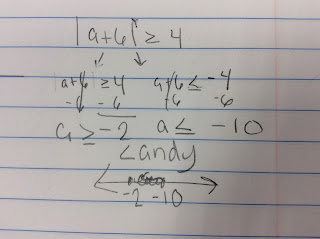 |a+6| ≥ 4
|a+6| ≥ 4 a+6 ≤ -4
-6 -6 -6 -6
a ≥ -2 a ≤ -10
Landy
-2 -10